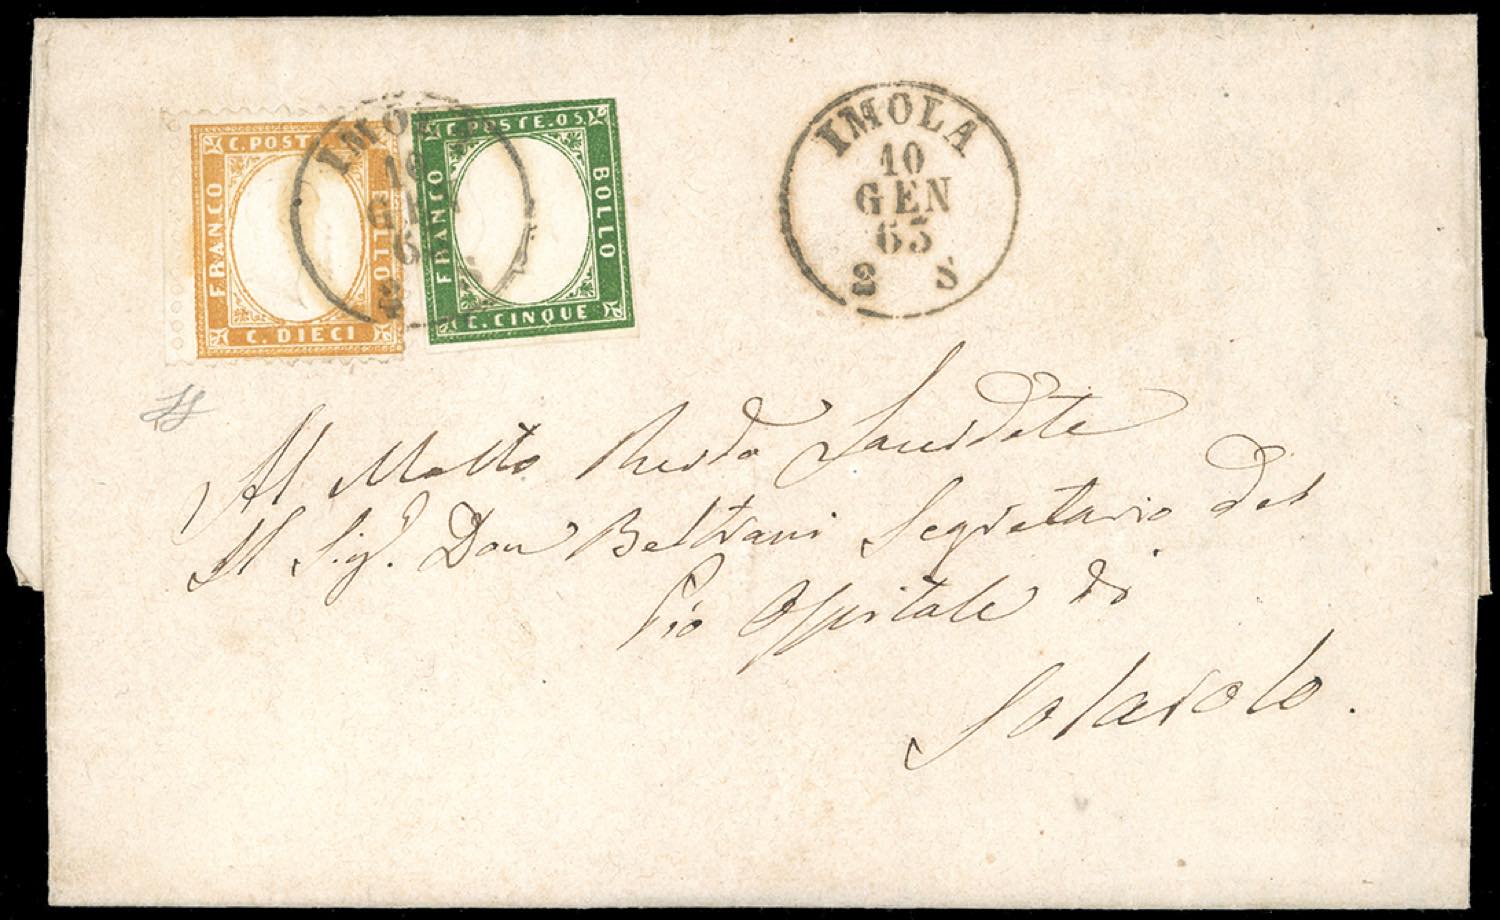 C. POSTE
FRANCO
BOLLO
C. DIECI
C. POSTE. OS.
FRANCO
BOLLO
C. CINQUE
IMOLA
10
GEN
63
IMOLA
10
GEN
63
2 S
Al Molto Revdo Sacerdote
Il Sigr. Don Beltrani Segretario del
Pio Ospitale di
Solarolo.